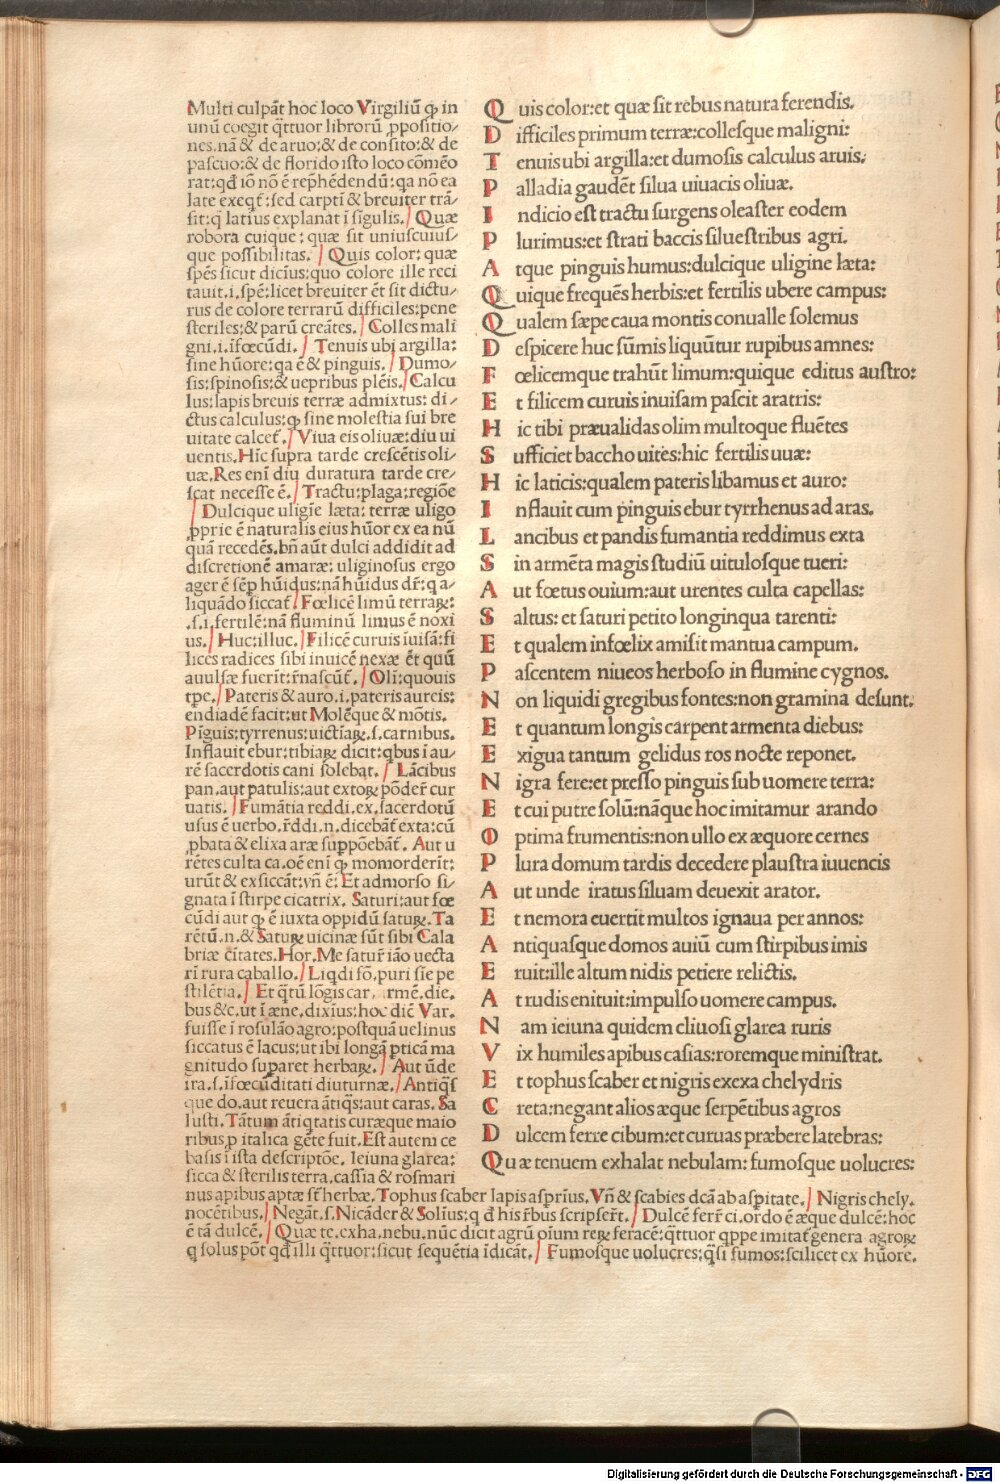 Multi culpãt hoc loco Virgiliũ ꝙ in
unũ coegit q̃ttuor librorũ ꝓpositio/
nes.nã & de aruo:& de consito:& de
pascuo:& de florido isto loco cõmẽo
rat:qđ iõ nõ ẽ rep̃hẽdendũ:qa nõ ea
late exeqt̃:sed carpti & breuiter trã/
sit:q latius explanat ĩ sĩgulis./ Quæ
robora cuique: quæ sit uniuscuius/
que possibilitas./ Quis color: quæ
sp̃es sicut dicĩus:quo colore ille reci
tauit.i.sp̃e:licet breuiter ẽt sit dictu/
rus de colore terrarũ difficiles:pene
steriles:& parũ creãtes./ Colles mali
gni.i.ĩfœcũdi./ Tenuis ubi argilla:
sine hũore:qa ẽ & pinguis./ Dumo/
sis:spinosis:& uepribus plẽis./ Calcu
lus:lapis breuis terræ admixtus: di/
ctus calculus:ꝙ sine molestia sui bre
uitate calcet̃./ Viua eis oliuæ:diu ui
uentis.Hic supra tarde crescẽtis oli/
uæ.Res enĩ diu duratura tarde cre/
scat necesse ẽ./ Tractu:plaga:regiõe
/ Dulcique uligĩe læta: terræ uligo
ꝓprie ẽ naturalis eius hũor ex ea nũ
quã recedẽs.bñ aũt dulci addidit ad
discretionẽ amaræ: uliginosus ergo
ager ẽ sẽp hũidus:nã hũidus dr̃:q a/
liquãdo siccat̃./ Fœlicẽ limũ terraꝝ:
.s.i.fertilẽ:nã fluminũ limus ẽ noxi
us./ Huc:illuc./ Filicẽ curuis ĩuisã:fi
lices radices sibi inuicẽ nexæ ẽt quũ
auulsæ fuerĩt:r̃nascũt̃./ Oli:quouis
tpe./ Pateris & auro.i.pateris aureis:
endiadẽ facit:ut Molẽque & mõtis.
Pĩguis:tyrrenus:uictĩaꝝ.s.carnibus.
Inflauit ebur:tibiaꝝ dicit:qbus ĩ au/
rẽ sacerdotis cani solebat̃./ Lãcibus
pan.aut patulis:aut extoꝝ põder̃ cur
uatis./ Fumãtia reddi.ex.sacerdotũ
usus ẽ uerbo.r̃ddi.n.dicebãt̃ exta:cũ
ꝓbata & elixa aræ suppõebãt̃. Aut u
rẽtes culta ca.oẽ enĩ ꝙ momorderĩt:
urũt & exsiccãt:vñ ẽ: Et admorso si/
gnata ĩ stirpe cicatrix. Saturi:aut fœ
cũdi aut ꝙ ẽ iuxta oppidũ saturꝝ.Ta
rẽtũ.n.& Saturꝝ uicinæ sũt sibi Cala
briæ ciĩtates.Hor.Me satur̃ ião uecta
ri rura caballo./ Liqdi fõ.puri sĩe pe
stilẽtia./ Et q̃tũ lõgis car. armẽ.die.
bus &c.ut ĩ æne.dixĩus:hoc diẽ Var.
fuisse ĩ rosulão agro:postquã uelinus
siccatus ẽ lacus:ut ibi longã pticã ma
gnitudo suparet herbaꝝ./ Aut ũde
ira.s.ĩfœcũditati diuturnæ./ Antiq̃s
que do.aut reuera ãtiq̃s:aut caras. Sa
lusti. Tãtum ãtiqtatis curæque maio
ribus ꝓ italica gẽte fuit.Est autem ce
basis ĩ ista descriptõe. Ieiuna glarea:
sicca & sterilis terra.cassia & rosmari
nus apibus aptæ st̃ herbæ. Tophus scaber lapis asprĩus. Vñ & scabies dcã ab aspitate./ Nigris chely.
nocẽtibus./ Negãt.s.Nicãder & Solĩus:q đ his r̃bus scripser̃t./ Dulcẽ ferr̃ ci.ordo ẽ æque dulcẽ:hoc
ẽ tã dulcẽ./ Quæ te.exha.nebu.nũc dicit agrũ oĩum reꝝ feracẽ:q̃ttuor qppe imitat̃ genera agroꝝ
q solus põt qđ illi q̃ttuor:sicut sequẽtia ĩdicãt./ Fumosque uolucres:q̃si fumos:scilicet ex hũore.
Quis color:et quæ sit rebus natura ferendis.
Difficiles primum terræ:collesque maligni:
Tenuis ubi argilla:et dumosis calculus aruis:
Palladia gaudẽt silua uiuacis oliuæ.
Indicio est tractu surgens oleaster eodem
Plurimus:et strati baccis siluestribus agri.
Atque pinguis humus:dulcique uligine læta:
Quique frequẽs herbis:et fertilis ubere campus:
Qualem sæpe caua montis conualle solemus
Despicere huc sũmis liquũtur rupibus amnes:
Fœlicemque trahũt limum:quique editus austro:
Et filicem curuis inuisam pascit aratris:
Hic tibi præualidas olim multoque fluẽtes
Sufficiet baccho uites:hic fertilis uuæ:
Hic laticis:qualem pateris libamus et auro:
Inflauit cum pinguis ebur tyrrhenus ad aras.
Lancibus et pandis fumantia reddimus exta
Sin armẽta magis studiũ uitulosque tueri:
Aut fœtus ouium:aut urentes culta capellas:
Saltus: et saturi petito longinqua tarenti:
Et qualem infœlix amisit mantua campum.
Pascentem niueos herboso in flumine cygnos.
Non liquidi gregibus fontes:non gramina desunt.
Et quantum longis carpent armenta diebus:
Exigua tantum gelidus ros nocte reponet.
Nigra fere:et presso pinguis sub uomere terra:
Et cui putre solũ:nãque hoc imitamur arando
Optima frumentis:non ullo ex æquore cernes
Plura domum tardis decedere plaustra iuuencis
Aut unde iratus siluam deuexit arator.
Et nemora euertit multos ignaua per annos:
Antiquasque domos auiũ cum stirpibus imis
Eruit:ille altum nidis petiere relictis.
At rudis enituit:impulso uomere campus.
Nam ieiuna quidem cliuosi glarea ruris
Vix humiles apibus casias:roremque ministrat.
Et tophus scaber et nigris exexa chelydris
Creta:negant alios æque serpẽtibus agros
Dulcem ferre cibum:et curuas præbere latebras:
Quæ tenuem exhalat nebulam: fumosque uolucres:
Digitalisierung gefördert durch die Deutsche Forschungsgemeinschaft - DFG